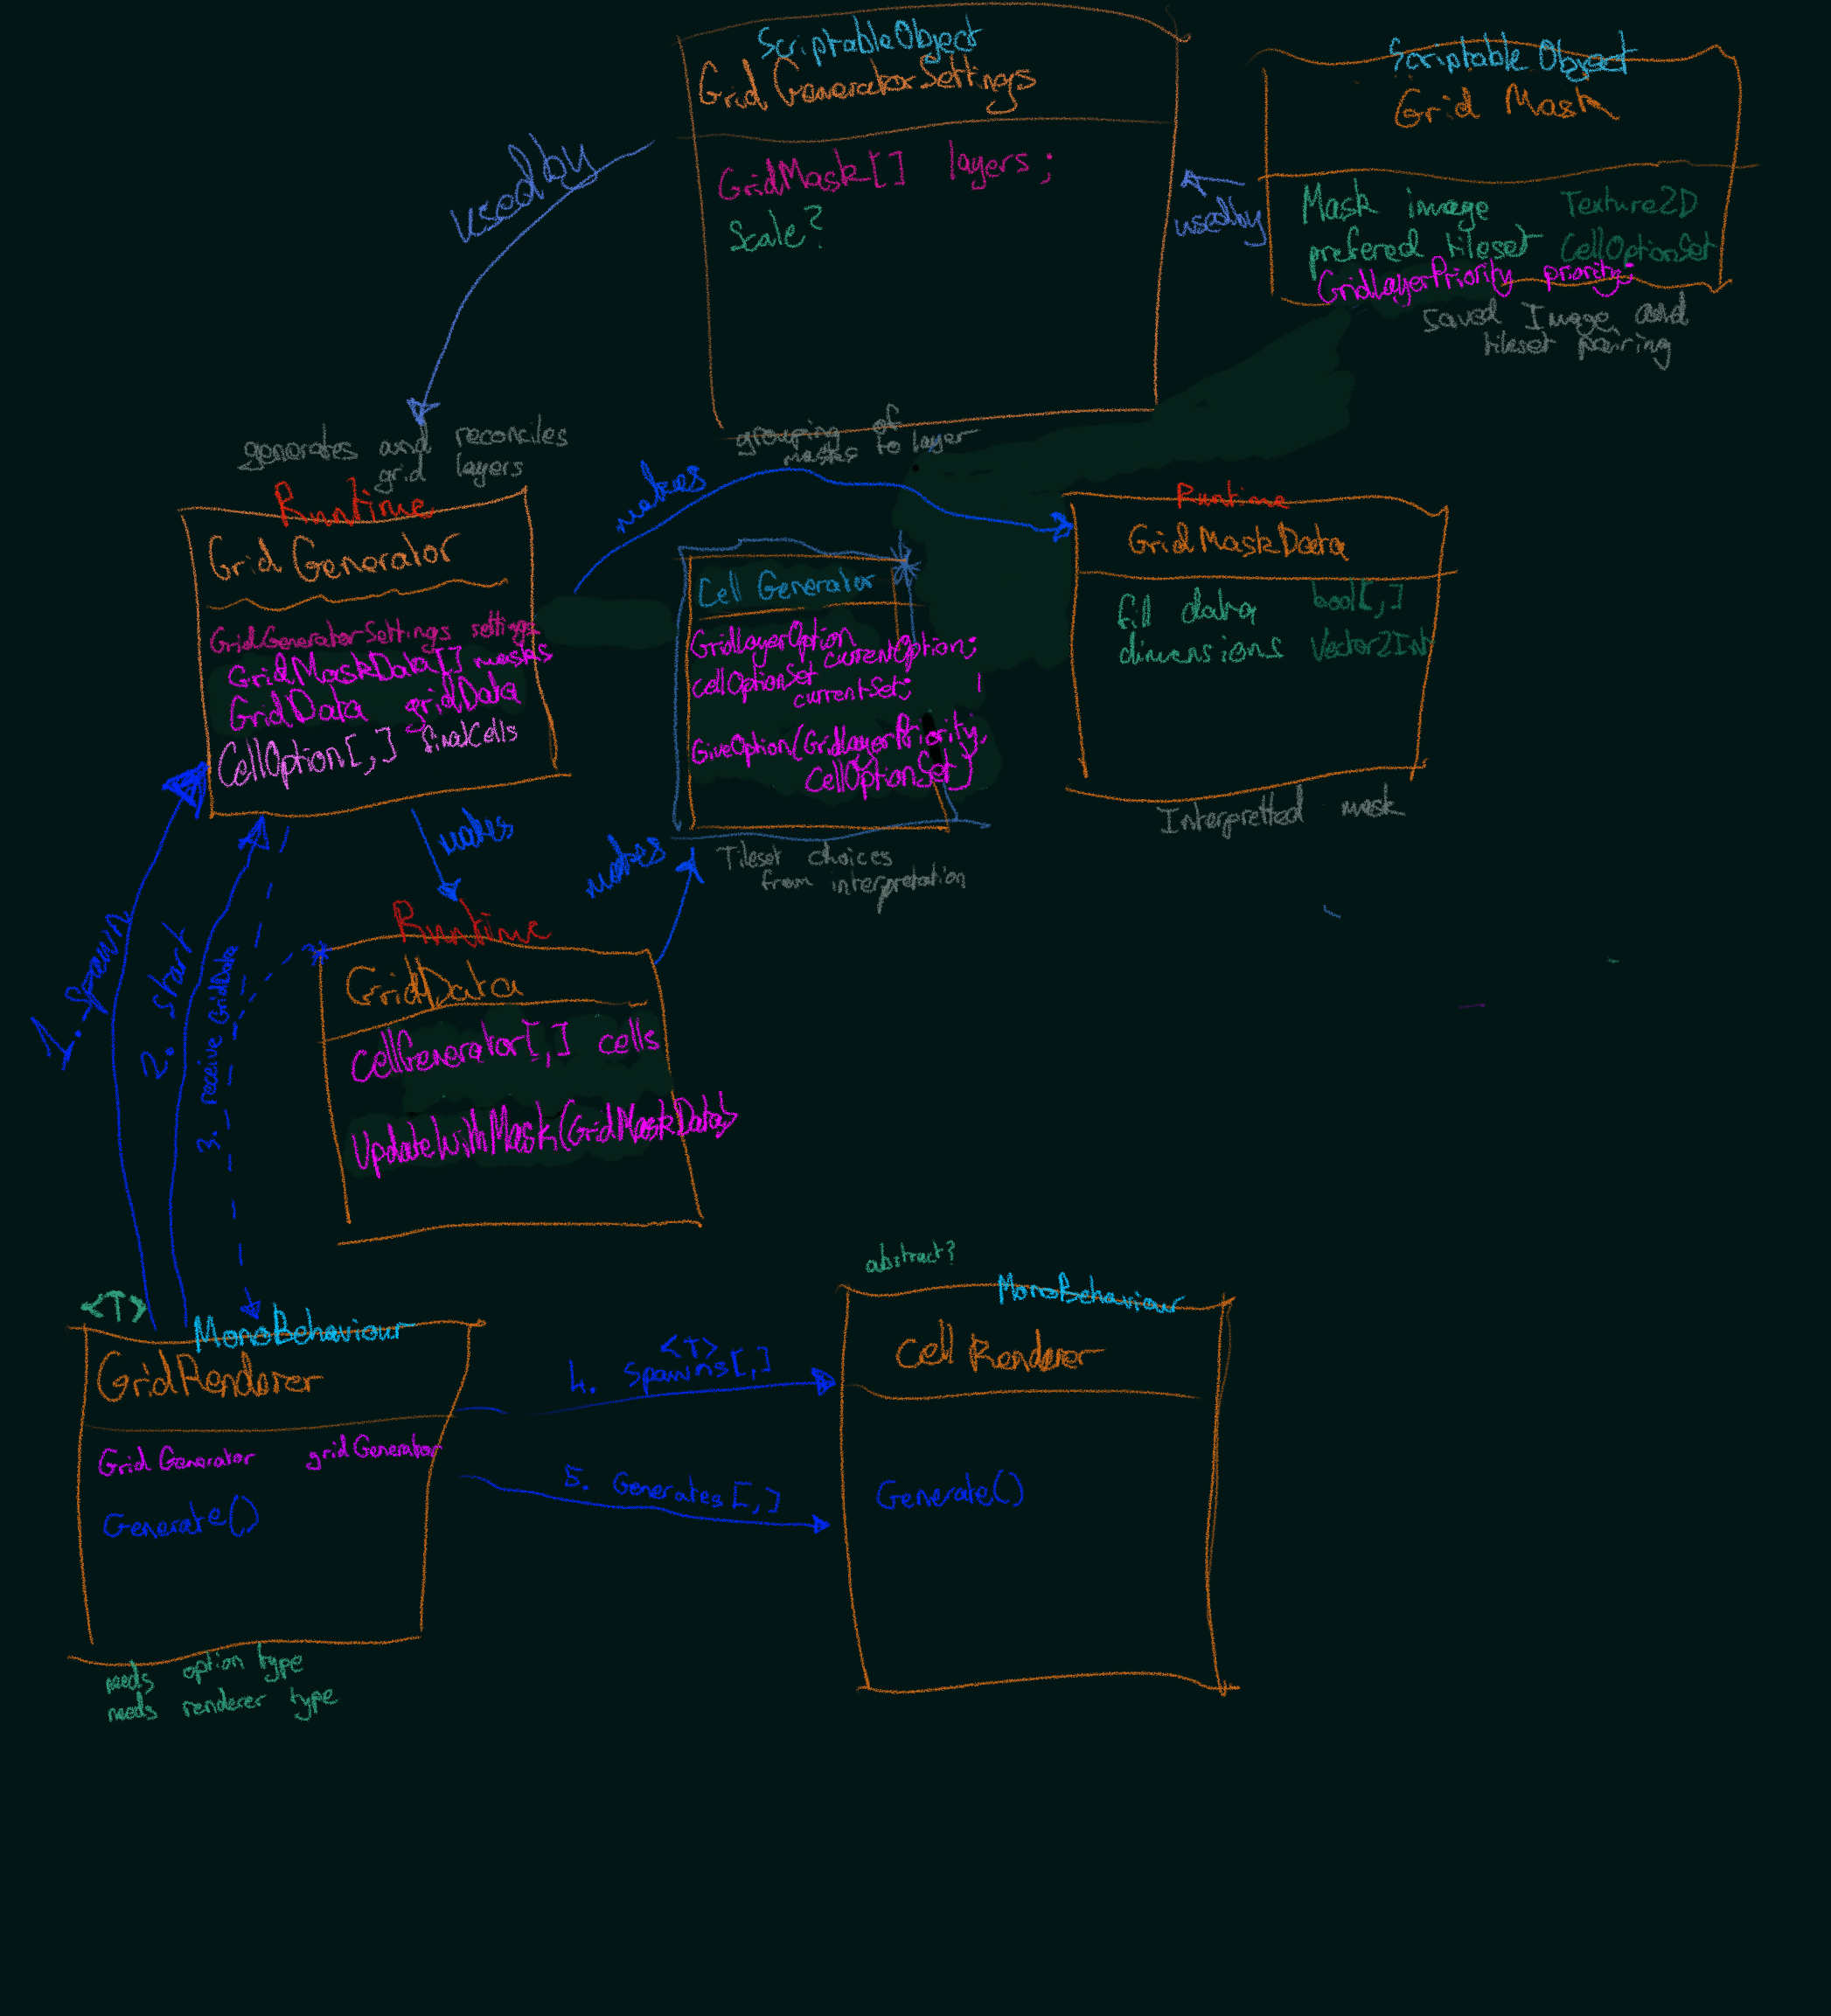 ScriptableObject
Grid GeneratorSettings
GridMask[] layers;
Scale?
grouping of
masks to layer
Scriptable Object
Grid Mask
Mask image Texture2D
prefered tileset CellOptionSet
GridLayerPriority priority;
saved Image and
tileset pairing
usedby
usedby
generates and reconciles
grid layers
Runtime
Grid Generator
GridGeneratorSettings settings
GridMaskData[] masks
GridData gridData
CellOption[,] finalCells
makes
Cell Generator
GridLayerOption
currentOption;
cellOptionSet
currentSet;
GiveOption(GridLayerPriority,
CellOptionSet)
Tileset choices
from interpretation
Runtime
GridMaskData
fill data bool[,]
dimensions Vector2Int
Interpretted mask
makes
makes
Runtime
GridData
CellGenerator[,] cells
UpdateWithMask(GridMaskData)
1. spawn
2. start
3. receive GridData
<T>
MonoBehaviour
GridRenderer
Grid Generator gridGenerator
Generate()
needs option type
needs renderer type
<T>
4. Spawns[,]
5. Generates[,]
abstract?
MonoBehaviour
Cell Renderer
Generate()